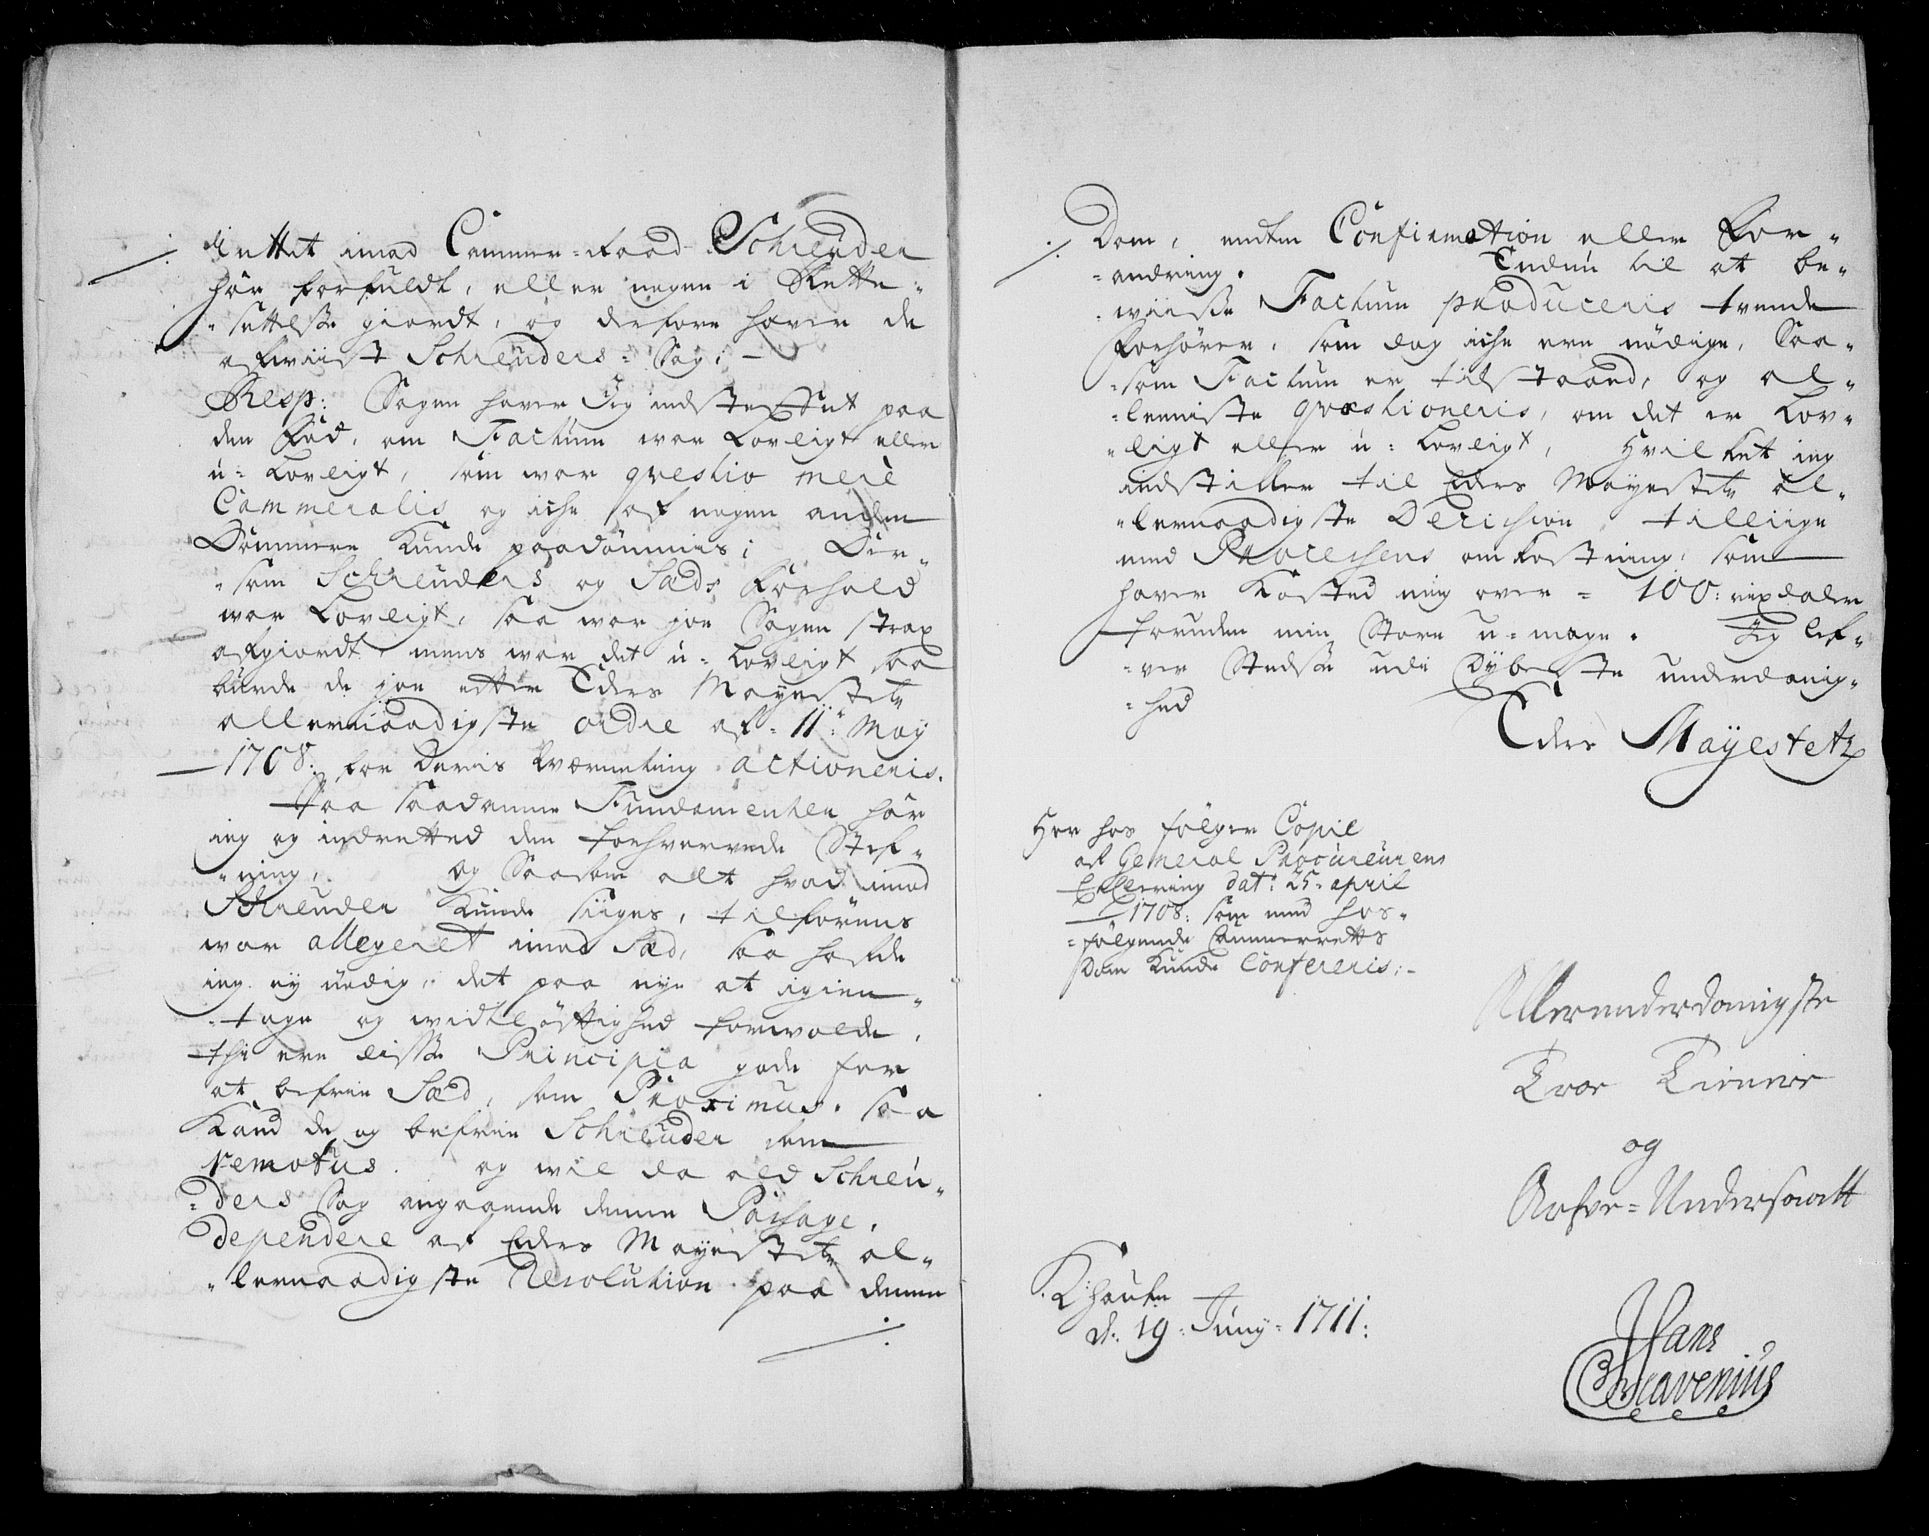 rettet imod Cammer-Raad Schreuder
hör forfuldt, eller nogen i Rette-
settelse giordt, og derfore haver de
afviist Schreuders Sag; -
Resp: Sagen haver Jeg indsteffnet paa
den Fod, om Factum var Lovligt eller
u-Lovligt, som var qvestio mere
Cammeralis og iche af nogen anden
Dommere Kunde paadömmis; Der-
som Schreuders og Sæds Forhold
var Lovligt, saa var jo Sagen strax
afgiordt, mens var det u-Lovligt saa
burde de jo efter Eders Mayestetz
allernaadigste ordre af 11te May
1708: for Deris Værneting actioneris.
Paa saadanne Fundamenter har
ieg og indretted den forhvervede Stef-
ning, og Saasom alt hvad imod
Schreuder Kunde siiges, tilforens
var allegeret imod Sæd, saa holdte
ieg ey nödig, det paa nye at igien-
tage og vidtlöftighed forvolde,
thi ere disse Principia gode for
at befrie Sæd, som Proximus, saa
Kand de og befrie Schreuder som
remotus. og vil da ald Schreu-
ders Sag angaaende denne Passage,
dependere af Eders Mayestetz al-
lernaadigste Resolution paa denne
Dom, enten Confirmation eller For-
andring. Endnu til at be-
viise Factum produceris tvende
Forhörer, som dog iche ere nödige, Saa-
som Factum er tilstaaed, og al-
leniste qvæstioneris, om det er Lov-
ligt eller u-Lovligt, Hvilket ieg
indstiller til Eders Mayestetz al-
lernaadigste Decision, tillige
med Processens omkostning, som
haver Kosted mig over 100: rixdaler
foruden min Store u-mage. Jeg lef-
ver Stedse udi Dybeste underdanig-
hed
Eders Mayestetz
Her hos fölger Copie
af General Procureurens
Erklering dat: 25. april
1708: som med hos-
fölgende Cammerretts
Dom Kunde Confereris; -
Allerunderdanigste
Troe Tienere
og
Arfve-Undersaatt
K:hafn
d: 19. Juny 1711:
Hans
Scavenius